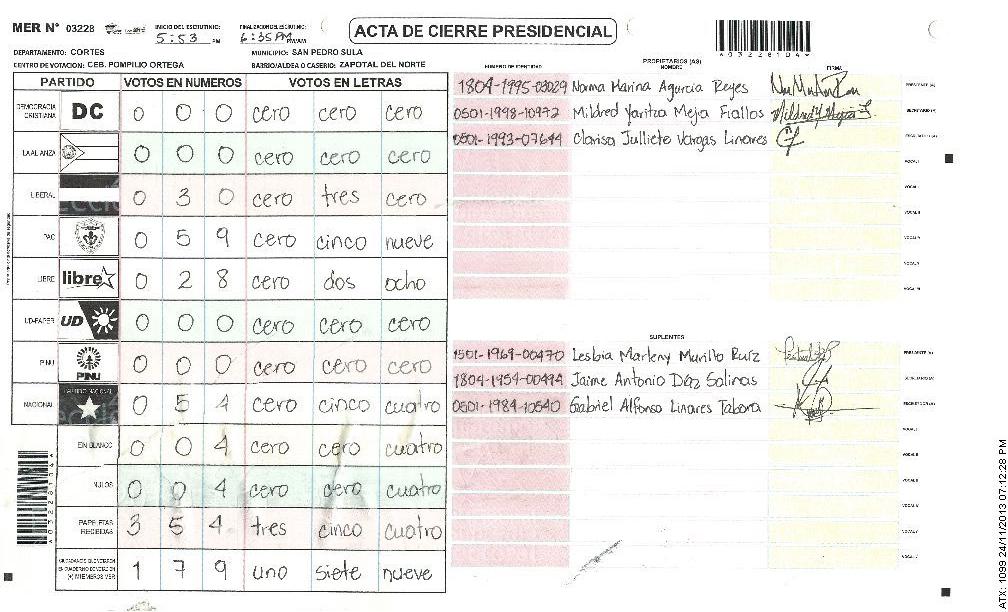 MER N° 03228
INICIO DEL ESCRUTINIO: 5:53 PM
FINALIZACION DEL ESCRUTINIO: 6:35 PM PM/AM
ACTA DE CIERRE PRESIDENCIAL
A03228104
DEPARTAMENTO: CORTES
MUNICIPIO: SAN PEDRO SULA
CENTRO DE VOTACION: CEB. POMPILIO ORTEGA
BARRIO/ALDEA O CASERIO: ZAPOTAL DEL NORTE
PARTIDO VOTOS EN NUMEROS VOTOS EN LETRAS
DEMOCRACIA CRISTIANA DC 0 0 0 cero cero cero
LA ALIANZA 0 0 0 cero cero cero
LIBERAL 0 3 0 cero tres cero
PAC 0 5 9 cero cinco nueve
LIBRE libre 0 2 8 cero dos ocho
UD-FAPER UD 0 0 0 cero cero cero
PINU PINU 0 0 0 cero cero cero
NACIONAL 0 5 4 cero cinco cuatro
EN BLANCO 0 0 4 cero cero cuatro
NULOS 0 0 4 cero cero cuatro
PAPELETAS RECIBIDAS 3 5 4 tres cinco cuatro
(+) MIEMBROS MER 1 7 9 uno siete nueve
PROPIETARIOS (AS)
NUMERO DE IDENTIDAD NOMBRE FIRMA
1804-1995-03029 Norma Marina Agurcia Reyes PRESIDENTE (A)
0501-1998-10972 Mildred Yaritza Mejia Fiallos SECRETARIO (A)
0501-1993-07644 Clarisa Jullieta Vargas Linares ESCRUTADOR (A)
VOCAL I
VOCAL II
VOCAL V
SUPLENTES
1501-1969-00470 Lesbia Marleny Murillo Ruiz PRESIDENTE (A)
1804-1954-00494 Jaime Antonio Díaz Salinas SECRETARIO (A)
0501-1984-10540 Gabriel Alfonso Linares Tabora ESCRUTADOR (A)
VOCAL I
VOCAL II
ATX: 1099 24/11/2013 07:12:28 PM